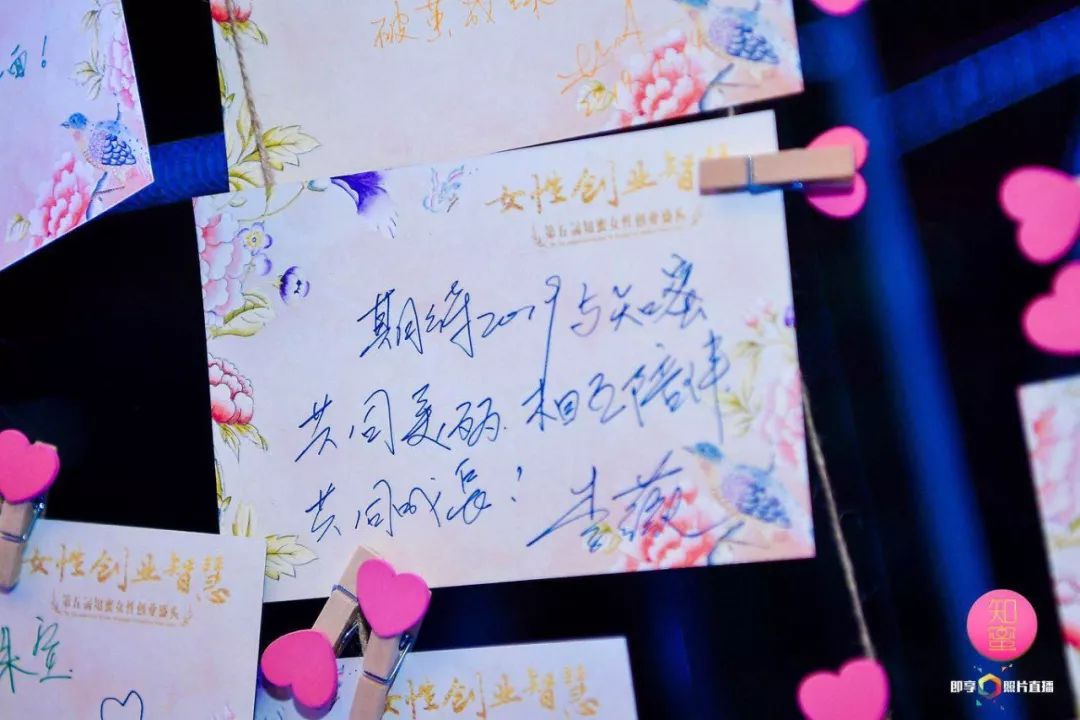 破茧
女性创业智
第五届知蜜女性创业盛典
期待2019与知蜜
共同美丽.相互陪伴
共同成长!
李薇
女性创业智慧
第五届知蜜女性创业盛典
女性创业智慧
知蜜
即享 照片直播